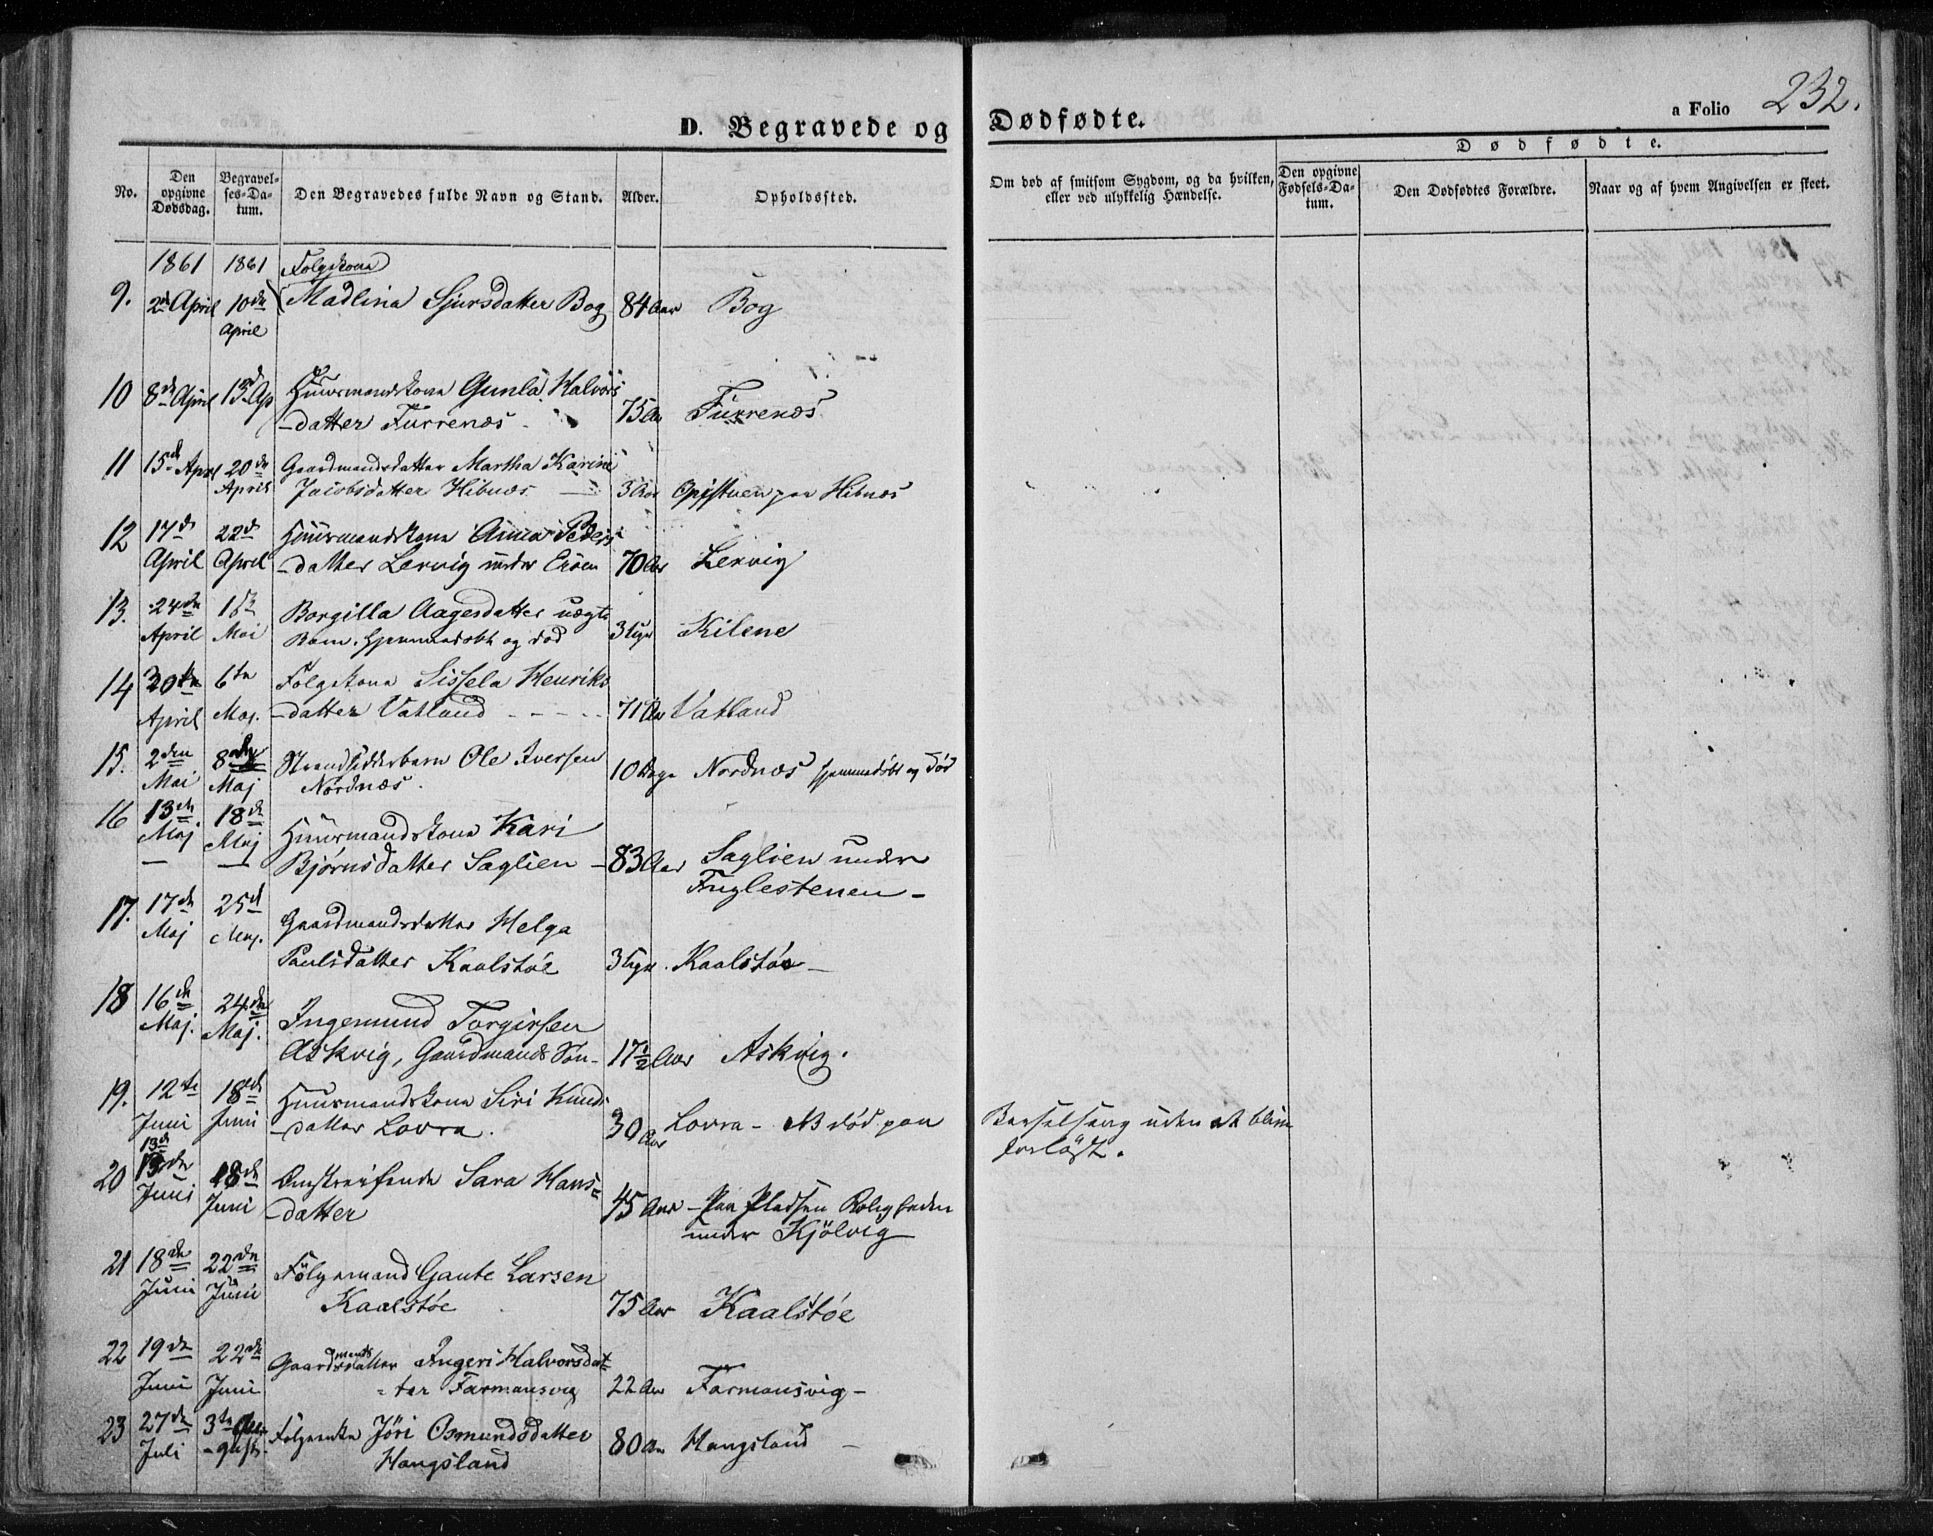 232.
a Folio
D. Begravede og Dødfødte.
Dødfødte.
No.
Den opgivne Dødsdag.
Begravelses-Datum.
Den Begravedes fulde Navn og Stand.
Alder.
Opholdssted.
Om død af smitsom Sygdom, og da hvilken, eller ved ulykkelig Hændelse.
Den opgivne Fødsels-Datum.
Den Dødfødtes Forældre.
Naar og af hvem Angivelsen er skeet.
1861 1861 Folgekone
9. 2d April 10de April Madlina Sjursdatter Bog 84 Aar Bog
10 8de April 13d Ap Huusmandskone Gunla Halvors
-datter Furrenæs 75 Aar Furrenæs
11 15de April 20de April Gaardmandsdatter Martha Karine
Jacobsdatter Hibnæs 3 Aar Opistuen paa Hibnæs
12 17d April 22d April Huusmandskone Anna Peders
-datter Lervig under Eröen 70 Aar Lervig
13. 24de April 1ste Mai Borgilla Aagesdatter uægte
Barn. hjemmedøbt og død 3 Uger Kilene
14 30te April 6te Maj. Folgekone Sissela Henriks
-datter Vatland 71 Aar Vatland
15. 2den Mai 8de Maj Strandsidderbarn Ole Iversen
Nordnæs. 10 Dage Nordnæs hjemmedøbt og død
16 13de Maj 18de Maj Huusmandskone Kari
Bjørnsdatter Saglien 83 Aar Saglien under
Fuglestenen
17. 17de Maj 25d Maj. Gaardmandsdatter Helga
Paulsdatter Kaalstöe 3 Uger. Kaalstöe
18 16de Maj. 24de Maj. Ingemund Torgirsen
Askvig, Gaardmands Søn 17½ Aar Askvig.
19. 12te Juni 18de Juni Huusmandskone Siri Knuds
-datter Lovra. 30 Aar Lovra - NB død paa Barselseng uden at blive
forløst.
13d
20 13de Juni 18de Juni Omstreifende Sara Hans=
-datter 45 Aar Paa Pladsen Roligheden
under Kjölvig
21 18de Juni 22de Juni Fölgemand Gaute Larsen
Kaalstöe 75 Aar Kaalstöe
22 19de Juni 22de Juni Gaardmandsdatter Ingeri Halvorsdat
-ter Farmansvig 22 Aar Farmansvig
23 27de Juli 3te August. Folgeenke Jöri Osmundsdatter
Hangsland 80 Aar Hangsland